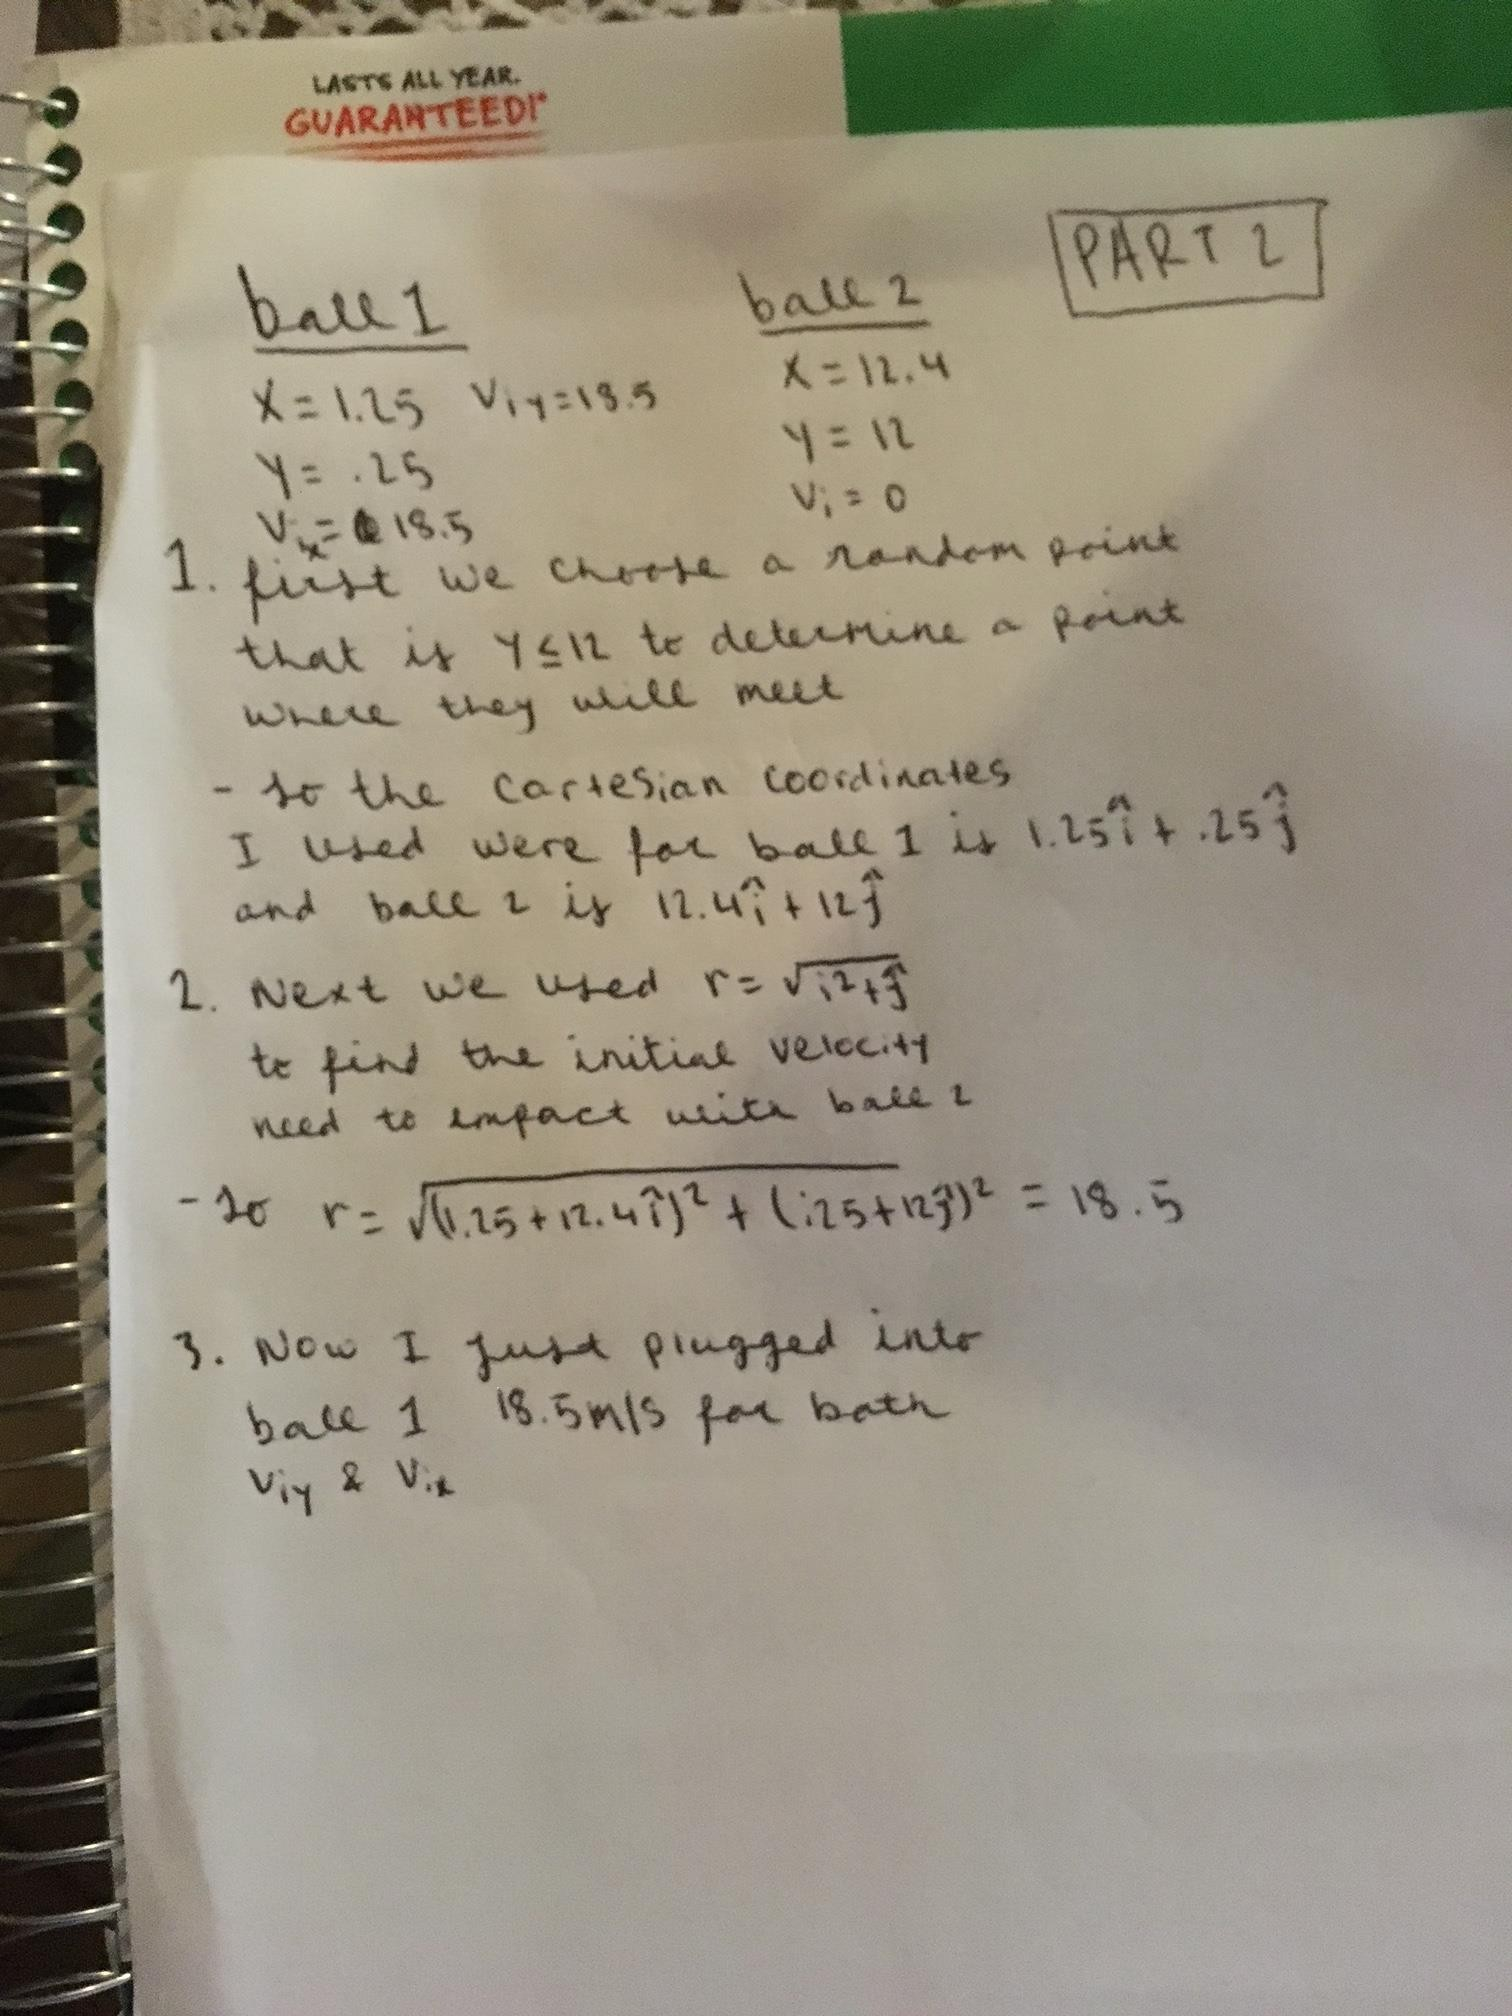 LASTS ALL YEAR.
GUARANTEED!*
PART 2
ball 1
X = 1.25 Viy = 18.5
Y = .25
Vix = 18.5
ball 2
X = 12.4
Y = 12
Vi = 0
1. first we choose a random point
that is Y ≤ 12 to determine a point
where they will meet
- so the Cartesian coordinates
I used were for ball 1 is 1.25î + .25ĵ
and ball 2 is 12.4î + 12ĵ
2. Next we used r = √i²+ĵ
to find the initial velocity
need to impact with ball 2
- so r = √(1.25+12.4î)² + (.25+12ĵ)² = 18.5
3. Now I just plugged into
ball 1 18.5m/s for both
Viy & Vix